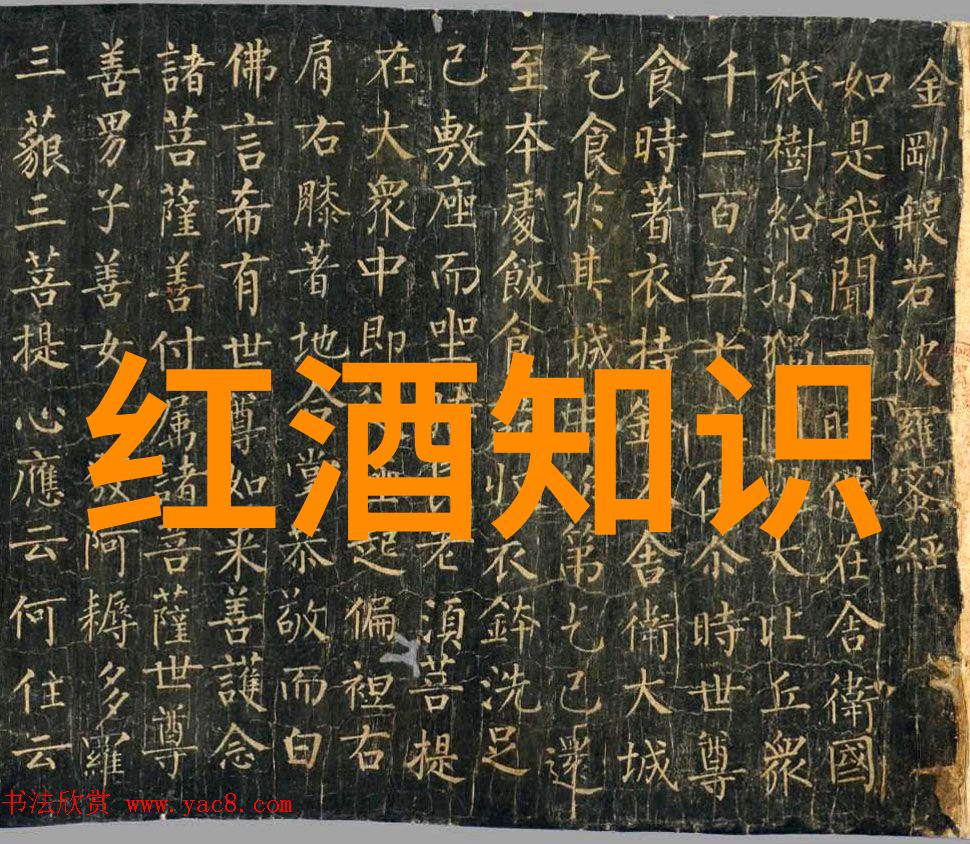 金剛般若波羅蜜經
如是我聞一時佛在舍衛國
祇樹給孤獨大比丘衆
千二百五十尒時世尊
食時著衣持舍衛大城
乞食於其城中第乞已還
至本處飯食收衣鉢洗足
已敷座而坐老須菩提
在大衆中即起偏袒右
肩右膝著地合掌恭敬而白
佛言希有世尊如来善護念
諸菩薩善付属諸菩薩世尊
善男子善女發阿耨多羅
三藐三菩提心應云何住云
红酒知识
书法欣赏 www.yac8.com